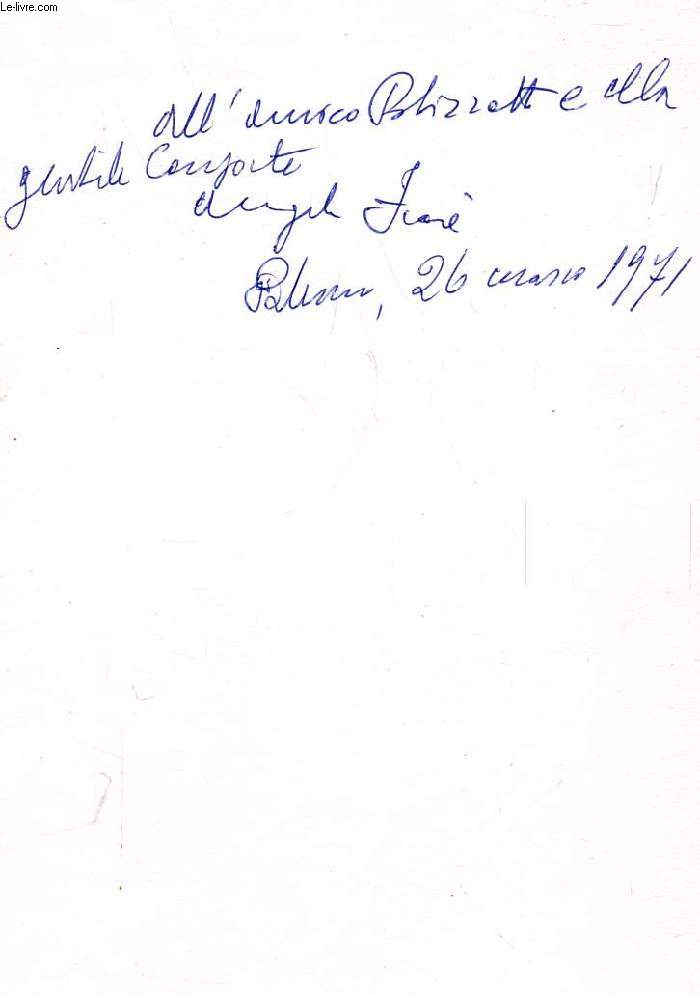 © Le-livre.com
all'amico Polizzotto e alla
gentile Consorte
Angelo Fiore
Palermo, 26 marzo 1971